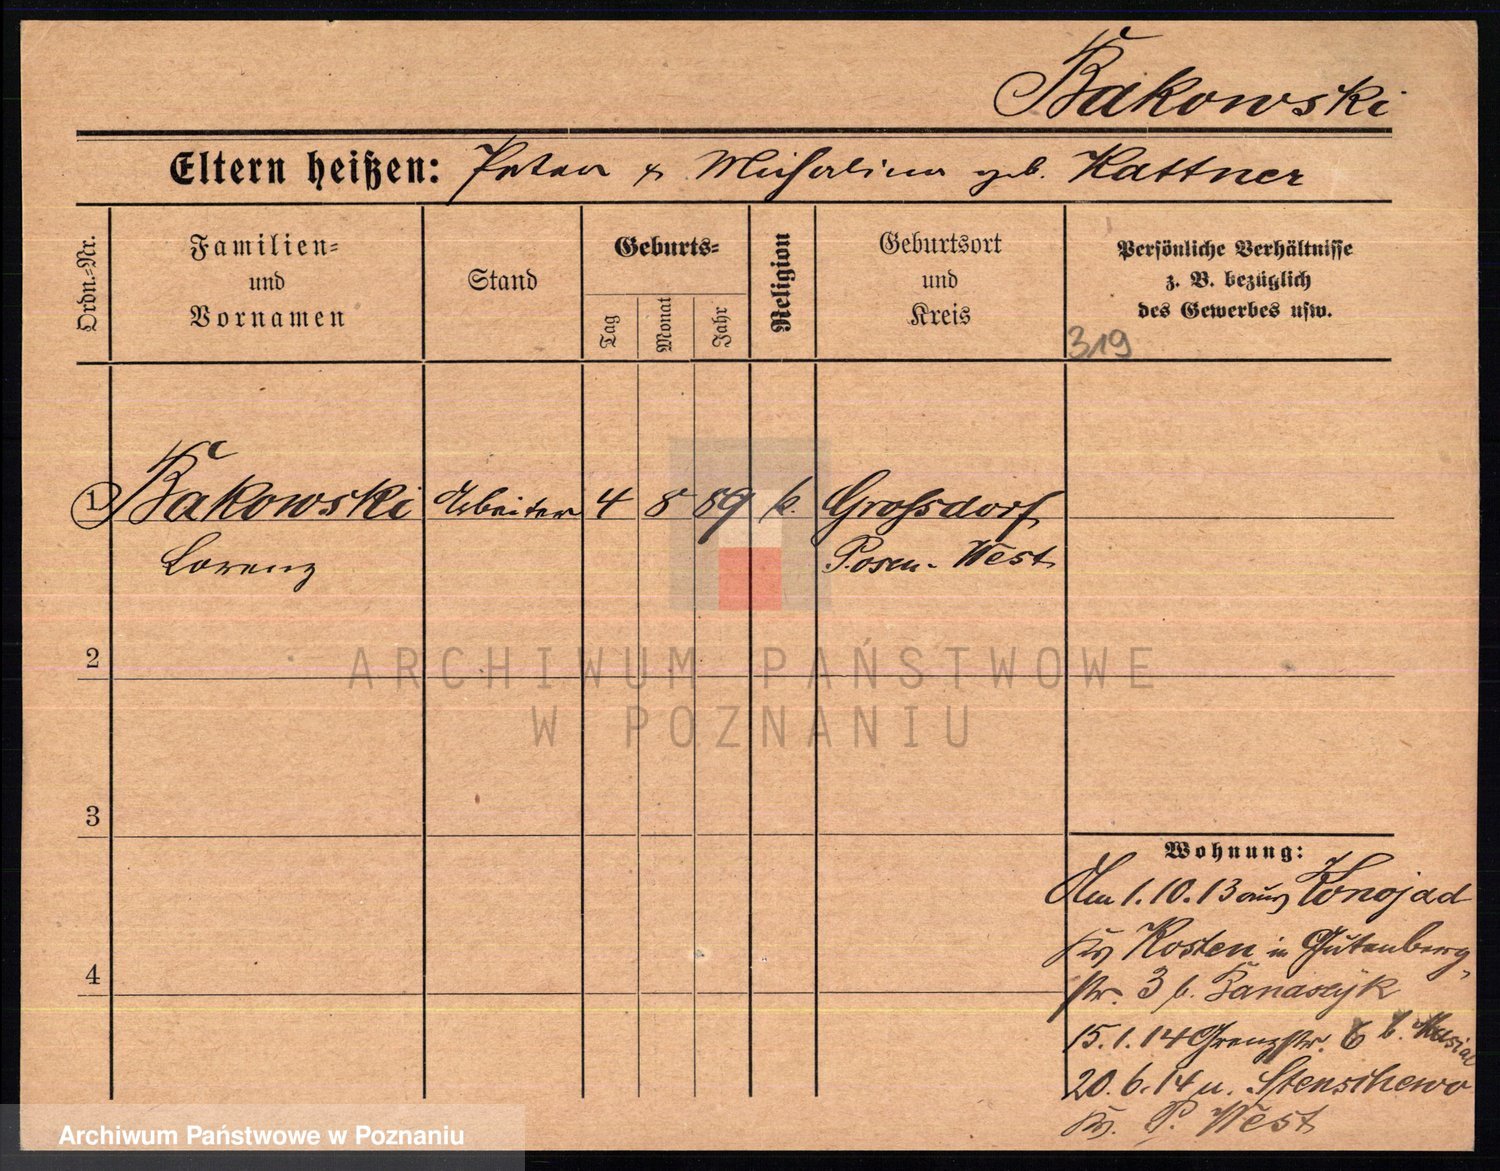 Bąkowski
Eltern heißen: Peter & Michalina geb. Kattner
Ordn.=Nr.
Familien=
und
Vornamen
Stand
Geburts=
Tag
Monat
Jahr
Religion
Geburtsort
und
Kreis
Persönliche Verhältnisse
z. B. bezüglich
des Gewerbes usw.
319
1 Bąkowski Arbeiter 4 8 89 k. Grossdorf
Lorenz Posen-West
2
3
4
Wohnung:
Am 1.10.13 aus Konojad
Krs Kosten in Gutenberg
str. 3 b. Banaszyk
15.1.14 Grenzstr. 6 b. Musial
20.6.14 n. Stenschewo
Krs. P. West
ARCHIWUM PAŃSTWOWE
W POZNANIU
Archiwum Państwowe w Poznaniu